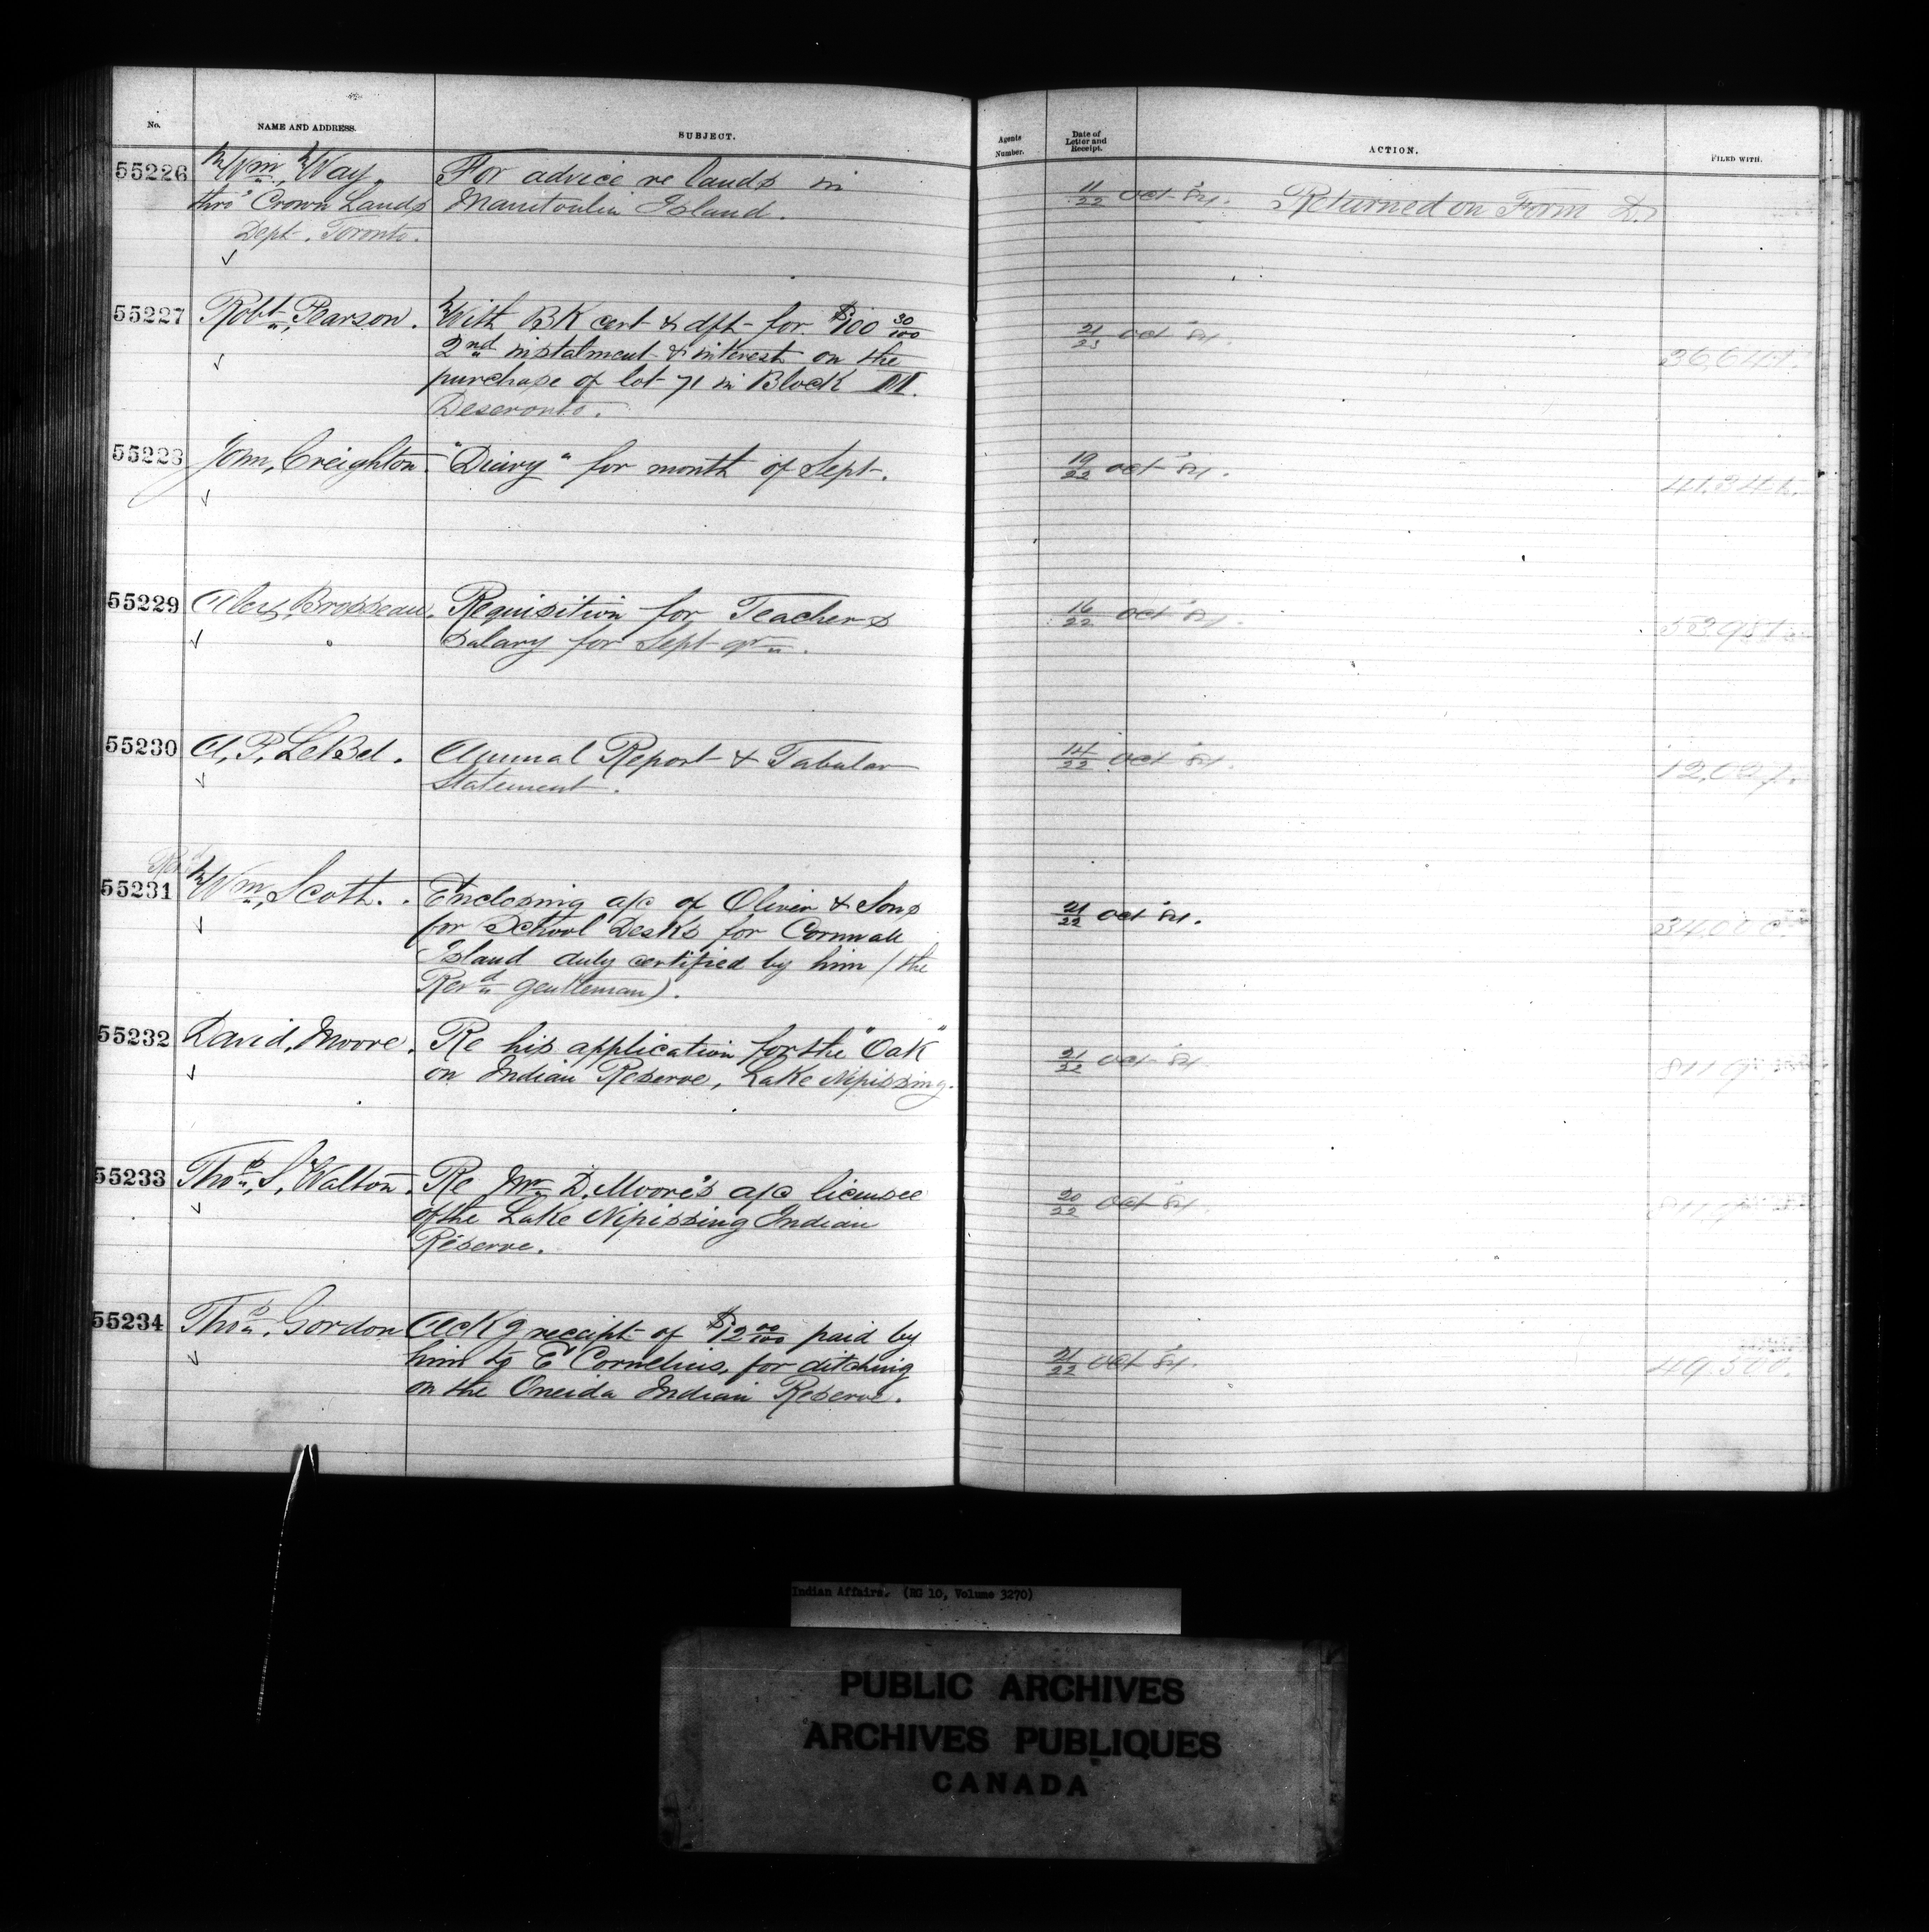 No.
NAME AND ADDRESS.
SUBJECT.
Agents Number.
Date of Letter and Receipt.
ACTION.
FILED WITH.
55226
Wm, Way,
thro' Crown Lands
Dept. Toronto.
For advice re lands in
Manitoulin Island.
11/22 Oct '84.
Returned on Form D.
55227
Robt, Pearson.
With BK cert & dft for $100 30/100
2nd instalment & interest on the
purchase of lot 71 in Block M.
Deseronto.
21/23 Oct '84.
36,641.
55228
John, Creighton.
"Diary" for month of Sept.
19/22 Oct '84.
55229
Alex, Brosseau.
Requisition for Teachers
Salary for Sept qr.
16/22 Oct '84.
55230
A. P. LeBel.
Annual Report & Tabular
Statement.
14/22 Oct '84.
12,027.
55231
Revd
Wm, Scott.
Enclosing a/c of Oliver & Sons
for School Desks for Cornwall
Island duly certified by him (the
Revd gentleman).
21/22 Oct '84.
55232
David, Moore.
Re his application for the "Oak"
on Indian Reserve, Lake Nipissing.
21/22 Oct '84.
55233
Thos, S, Walton.
Re Mr D. Moore's a/c licensee
of the Lake Nipissing Indian
Reserve.
20/22 Oct '84.
55234
Thos, Gordon
Ackg receipt of $12 00/100 paid by
him to E Cornelius, for ditching
on the Oneida Indian Reserve.
21/22 Oct '84.
49,500.
Indian Affairs. (RG 10, Volume 3270)
PUBLIC ARCHIVES
ARCHIVES PUBLIQUES
CANADA